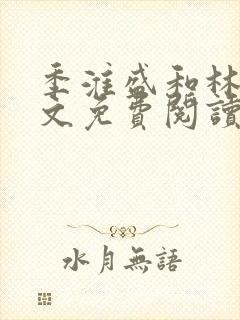 季淮盛和林
文免費閱讀
水月無語